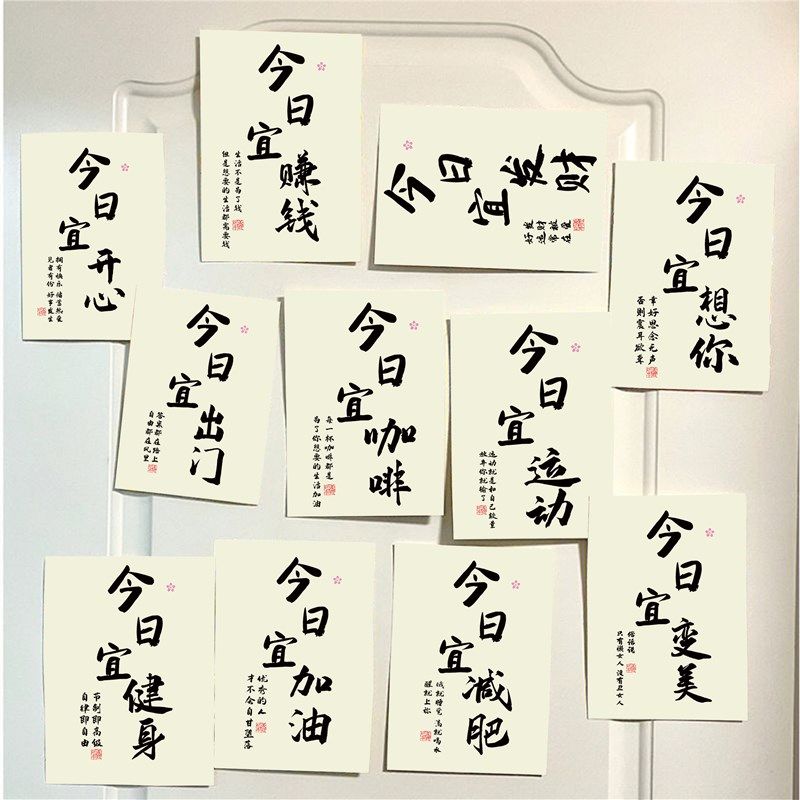 今日宜赚钱
生活不是为了钱
但是想要的生活都需要钱
今日宜发财
发财被爱
好运常在
今日宜开心
拥有快乐 储蓄热爱
见者有份 好事发生
今日宜想你
幸好思念无声
否则震耳欲聋
今日宜出门
答案都在路上
自由都在风里
今日宜咖啡
每一杯咖啡都是
为了你想要的生活加油
今日宜运动
运动就是和自己较量
放弃你就输了
今日宜变美
俗话说
只有懒女人 没有丑女人
今日宜健身
节制即高级
自律即自由
今日宜加油
优秀的人
才不会自甘堕落
今日宜减肥
饿就睡觉 渴就喝水
醒就上称